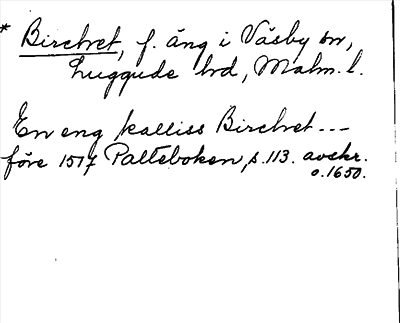 * Birchret, f. äng i Väsby sn,
Luggude hd, Malm. l.
En eng kalliss Birchret ---
före 1517 Palteboken, s. 113. avskr.
o. 1650.